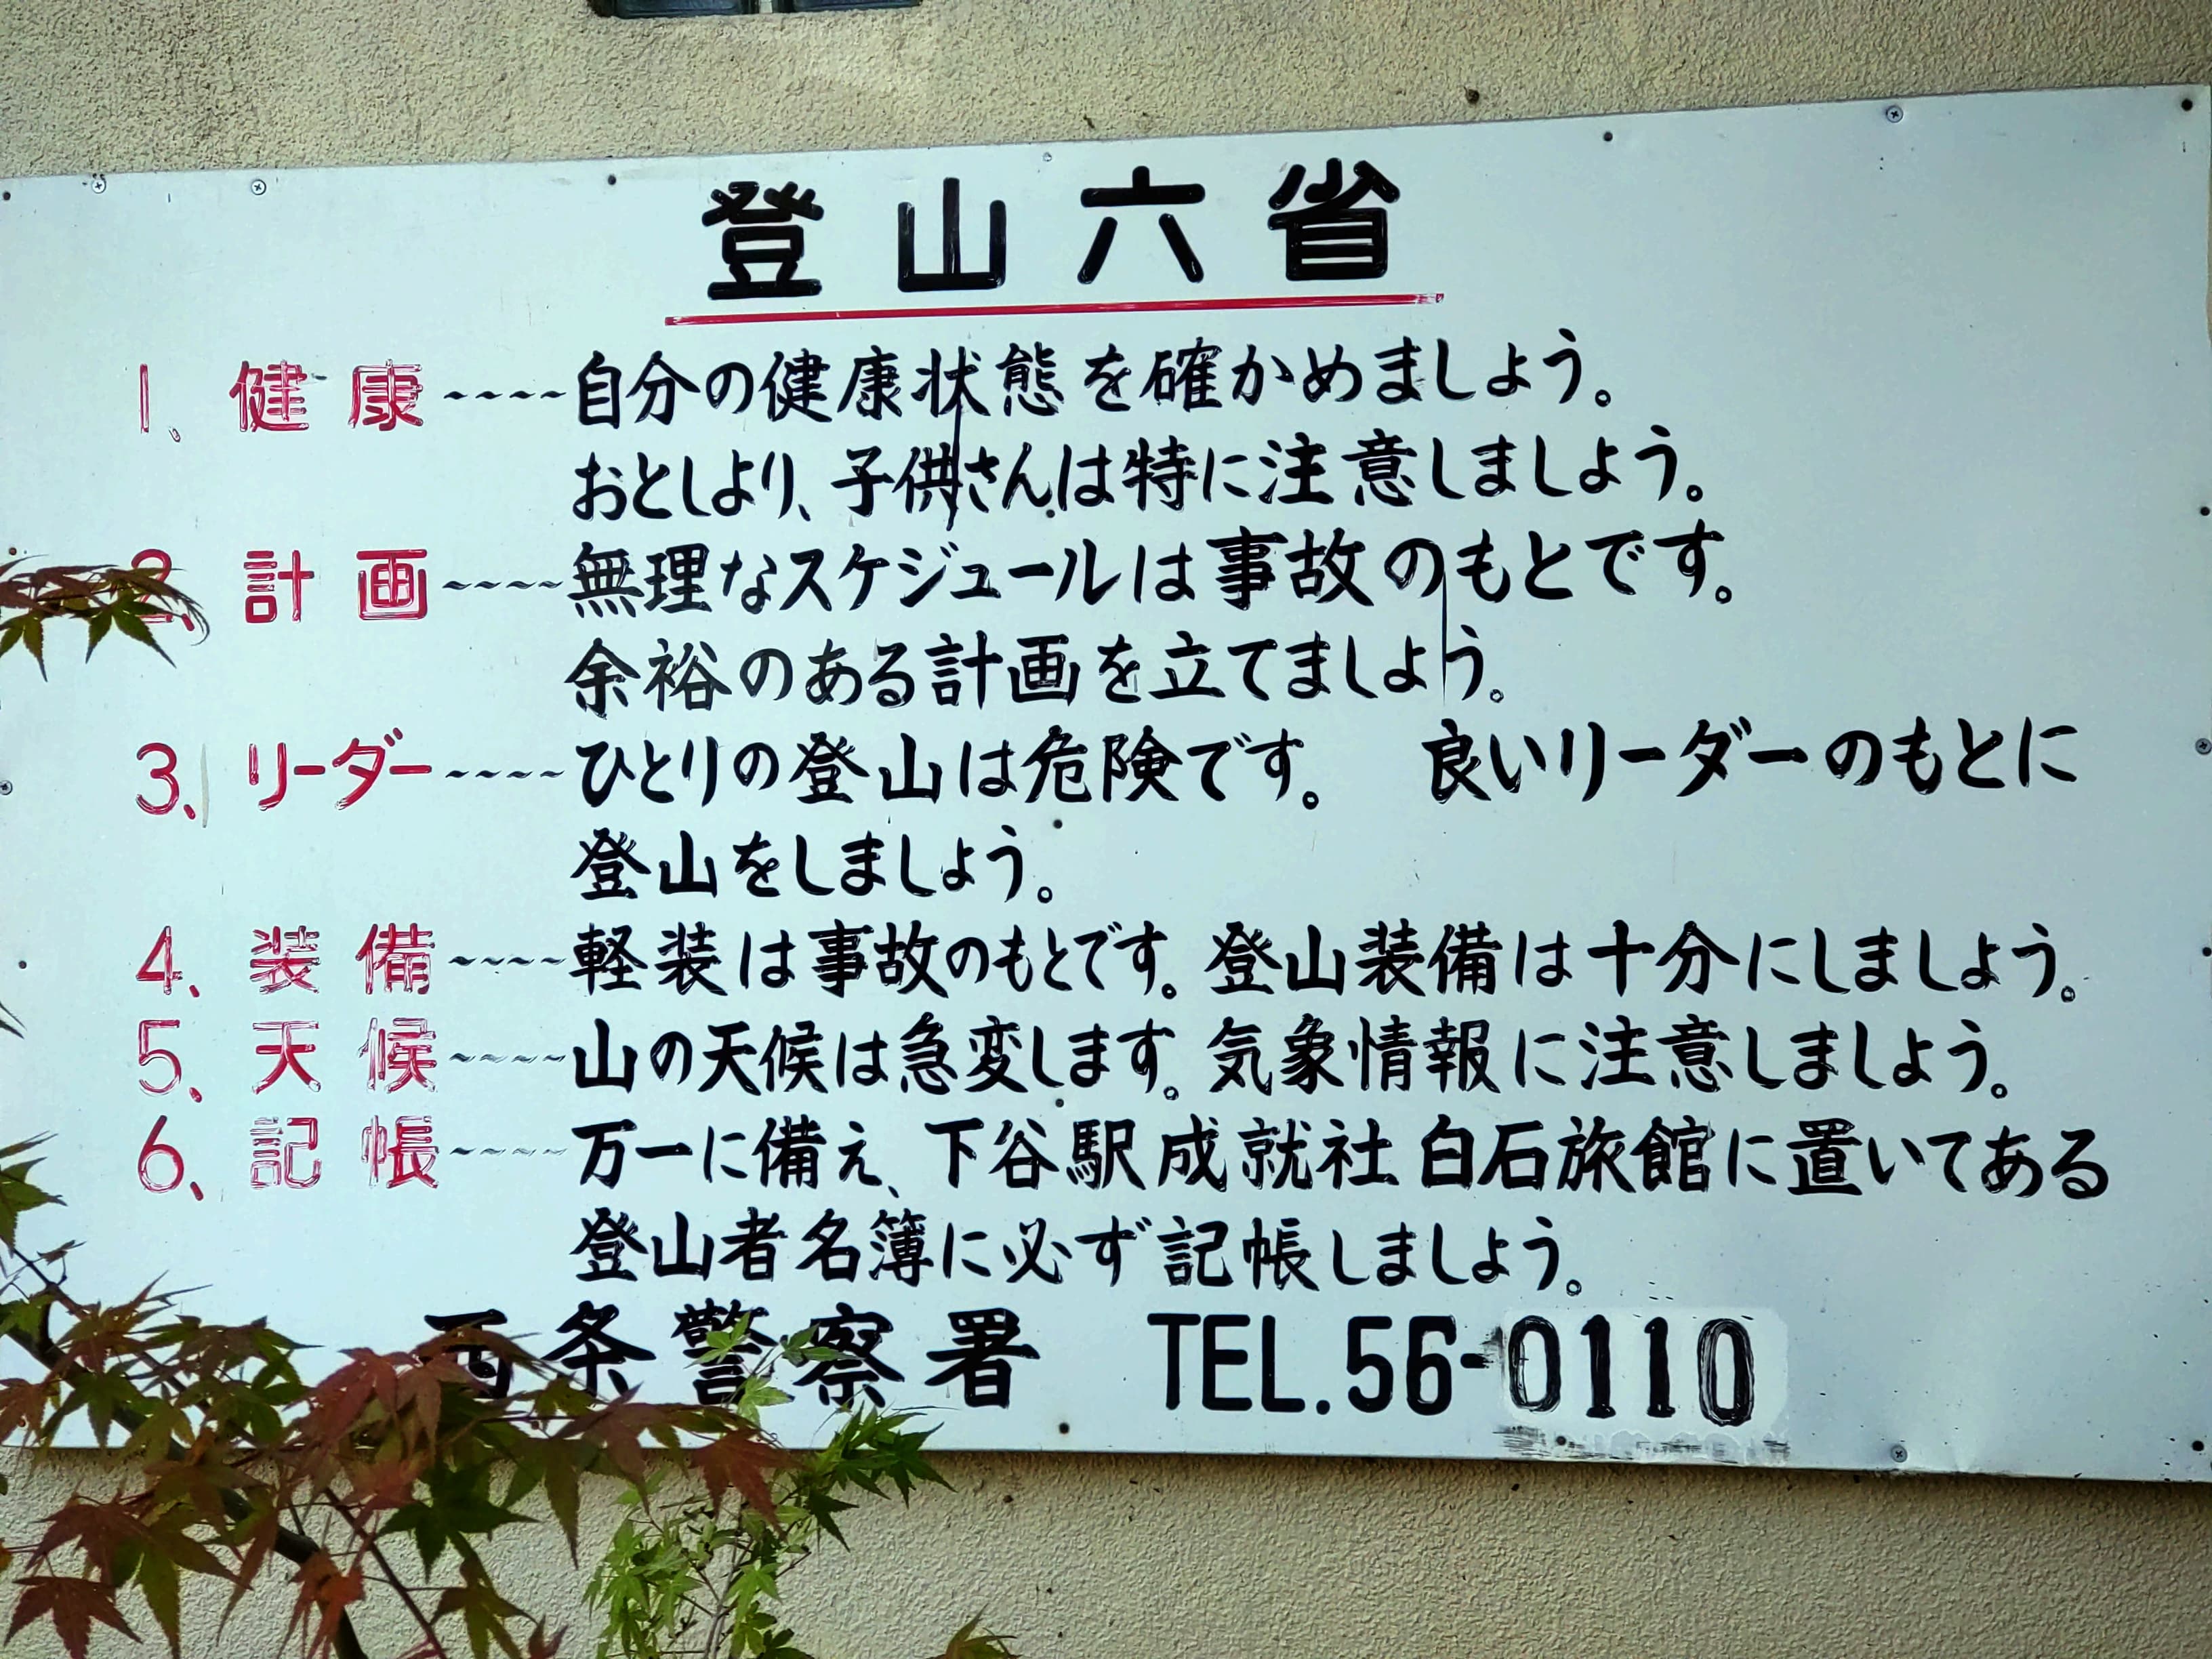 登山六省
1、健康----自分の健康状態を確かめましょう。
おとしより、子供さんは特に注意しましょう。
2、計画----無理なスケジュールは事故のもとです。
余裕のある計画を立てましよう。
3、リーダー----ひとりの登山は危険です。 良いリーダーのもとに
登山をしましょう。
4、装備----軽装は事故のもとです。登山装備は十分にしましょう。
5、天候----山の天候は急変します。気象情報に注意しましょう。
6、記帳----万一に備え、下谷駅 成就社 白石旅館に置いてある
登山者名簿に必ず記帳しましょう。
西条警察署 TEL.56-0110